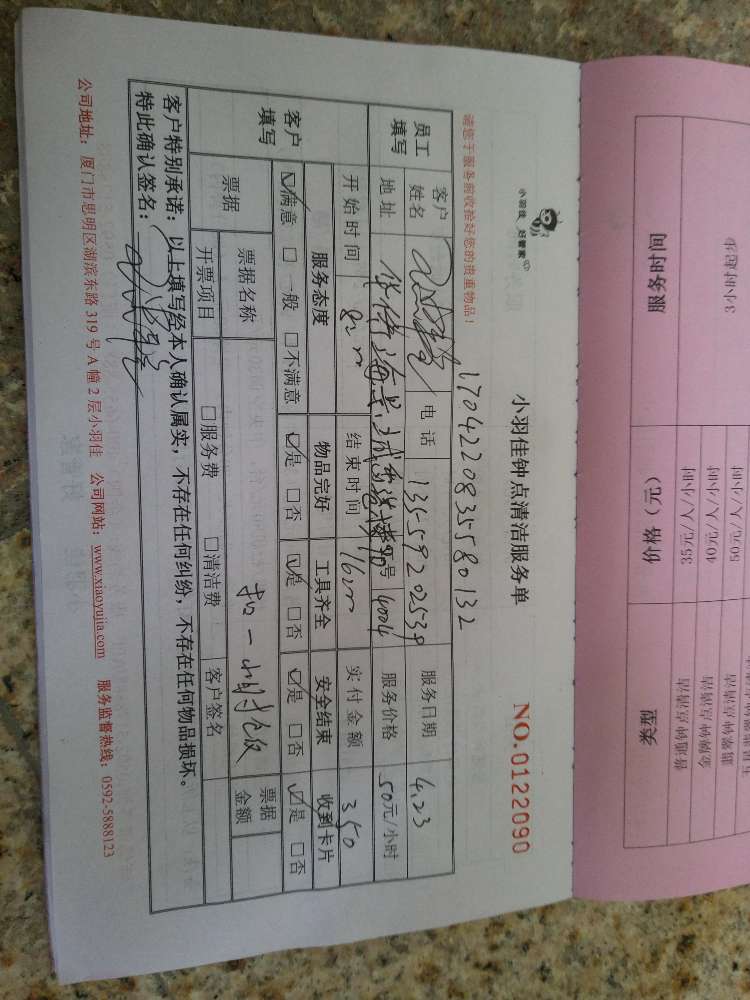 小羽佳 好管家
小羽佳钟点清洁服务单
NO.0122090
1704220835580132
请您于服务前收拾好您的贵重物品!
员工填写
客户姓名
电话
13559202539
服务日期
4.23
地址
号
4004
服务价格
50元/小时
客户填写
开始时间
结束时间
实付金额
350
服务态度
物品完好
工具齐全
安全结束
收到卡片
☑满意 □一般 □不满意
☑是 □否
☑是 □否
☑是 □否
☑是 □否
票据
票据名称
扣一小时吃饭
票据金额
开票项目
□服务费
□清洁费
客户签名
客户特别承诺:以上填写经本人确认属实,不存在任何纠纷,不存在任何物品损坏。
特此确认签名:
公司地址:厦门市思明区湖滨东路 319 号 A 幢 2 层小羽佳 公司网站:www.xiaoyujia.com 服务监督热线:0592-5888123
服务时间
价格(元)
类型
3小时起步
35元/人/小时
40元/人/小时
50元/人/小时